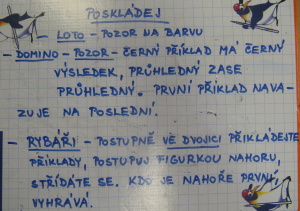 POSKLÁDEJ
- LOTO - POZOR NA BARVU
- DOMINO - POZOR - ČERNÝ PŘÍKLAD MÁ ČERNÝ
VÝSLEDEK, PRŮHLEDNÝ ZASE
PRŮHLEDNÝ. PRVNÍ PŘÍKLAD NAVA-
ZUJE NA POSLEDNÍ.
- RYBÁŘI - POSTUPNĚ VE DVOJICI PŘIKLÁDEJTE
PŘÍKLADY, POSTUPUJ FIGURKOU NAHORU,
STŘÍDÁTE SE. KDO JE NAHOŘE PRVNÍ,
VYHRÁVÁ.